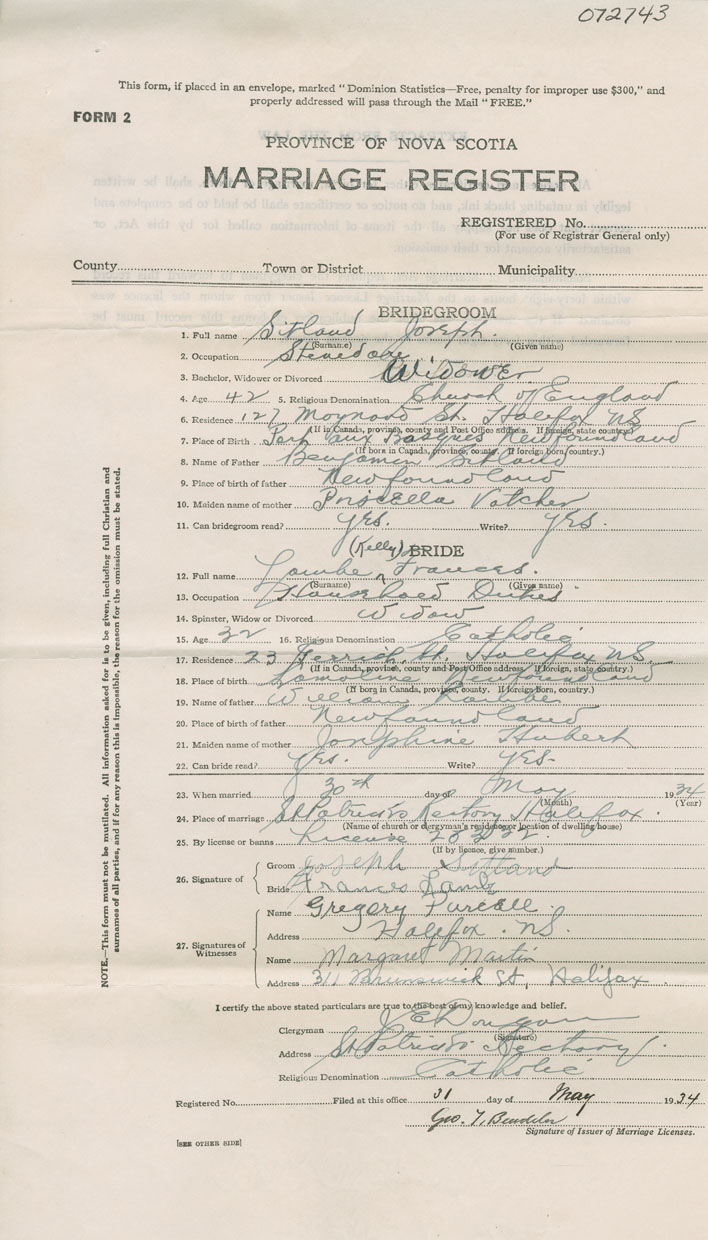 072743
This form, if placed in an envelope, marked "Dominion Statistics—Free, penalty for improper use $300," and
properly addressed will pass through the Mail "FREE."
FORM 2
PROVINCE OF NOVA SCOTIA
MARRIAGE REGISTER
REGISTERED No.
(For use of Registrar General only)
County Town or District Municipality
BRIDEGROOM
1. Full name Sitland Joseph.
(Surname) (Given name)
2. Occupation Stevedore
3. Bachelor, Widower or Divorced Widower
4. Age 42 5. Religious Denomination Church of England
6. Residence 127 Maynard St. Halifax NS
(If in Canada, province, county and Post Office address. If foreign, state country)
7. Place of Birth Port aux Basques Newfoundland
(If born in Canada, province, county. If foreign born, country.)
8. Name of Father Benjamin Sitland
9. Place of birth of father Newfoundland
10. Maiden name of mother Priscella Vatcher
11. Can bridegroom read? yes. Write? yes.
(Kelly) BRIDE
12. Full name Lambe Frances.
(Surname) (Given name)
13. Occupation Household Duties
14. Spinster, Widow or Divorced Widow
15. Age 32 16. Religious Denomination Catholic
17. Residence 23 St. Halifax NS
(If in Canada, province, county and Post Office address. If foreign, state country)
18. Place of birth Lamaline Newfoundland
(If born in Canada, province, county. If foreign born, country.)
19. Name of father William
20. Place of birth of father Newfoundland
21. Maiden name of mother Josephine Hubert
22. Can bride read? Yes. Write? Yes-
23. When married 30th day of May 1934
(Month) (Year)
24. Place of marriage St Patrick's Rectory Halifax.
(Name of church or clergyman's residence or location of dwelling house)
25. By license or banns License
(If by licence, give number.)
26. Signature of
Groom Joseph Sitland
Bride Frances Lambe
27. Signatures of Witnesses
Name Gregory Purcell
Address Halifax. NS.
Name Margaret Martin
Address 311 Brunswick St, Halifax.
I certify the above stated particulars are true to the best of my knowledge and belief.
Clergyman
(Signature)
Address St Patrick's Rectory.
Religious Denomination Catholic
Registered No. Filed at this office 31 day of May 1934
Geo. T.
Signature of Issuer of Marriage Licenses.
[SEE OTHER SIDE]
NOTE.—This form must not be mutilated. All information asked for is to be given, including full Christian and
surnames of all parties, and if for any reason this is impossible, the reason for the omission must be stated.